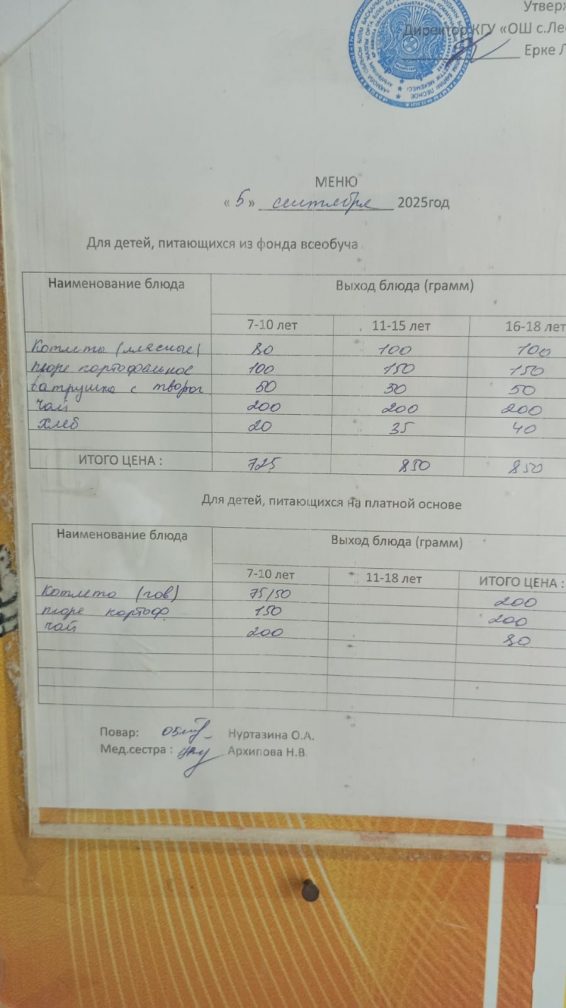 Утверж
Директор КГУ «ОШ с.Лес
Ерке Л
МЕНЮ
« 5 » сентября 2025год
Для детей, питающихся из фонда всеобуча
Наименование блюда Выход блюда (грамм)
7-10 лет 11-15 лет 16-18 лет
Котлеты (мясные) 80 100 100
пюре картофельное 100 150 150
Ватрушка с творог 50 50 50
Чай 200 200 200
Хлеб 20 35 40
ИТОГО ЦЕНА : 725 850 850
Для детей, питающихся на платной основе
Наименование блюда Выход блюда (грамм)
7-10 лет 11-18 лет ИТОГО ЦЕНА :
Котлета (гов) 75/50 200
пюре картоф 150 200
чай 200 80
Повар: Нуртазина О.А.
Мед.сестра : Архипова Н.В